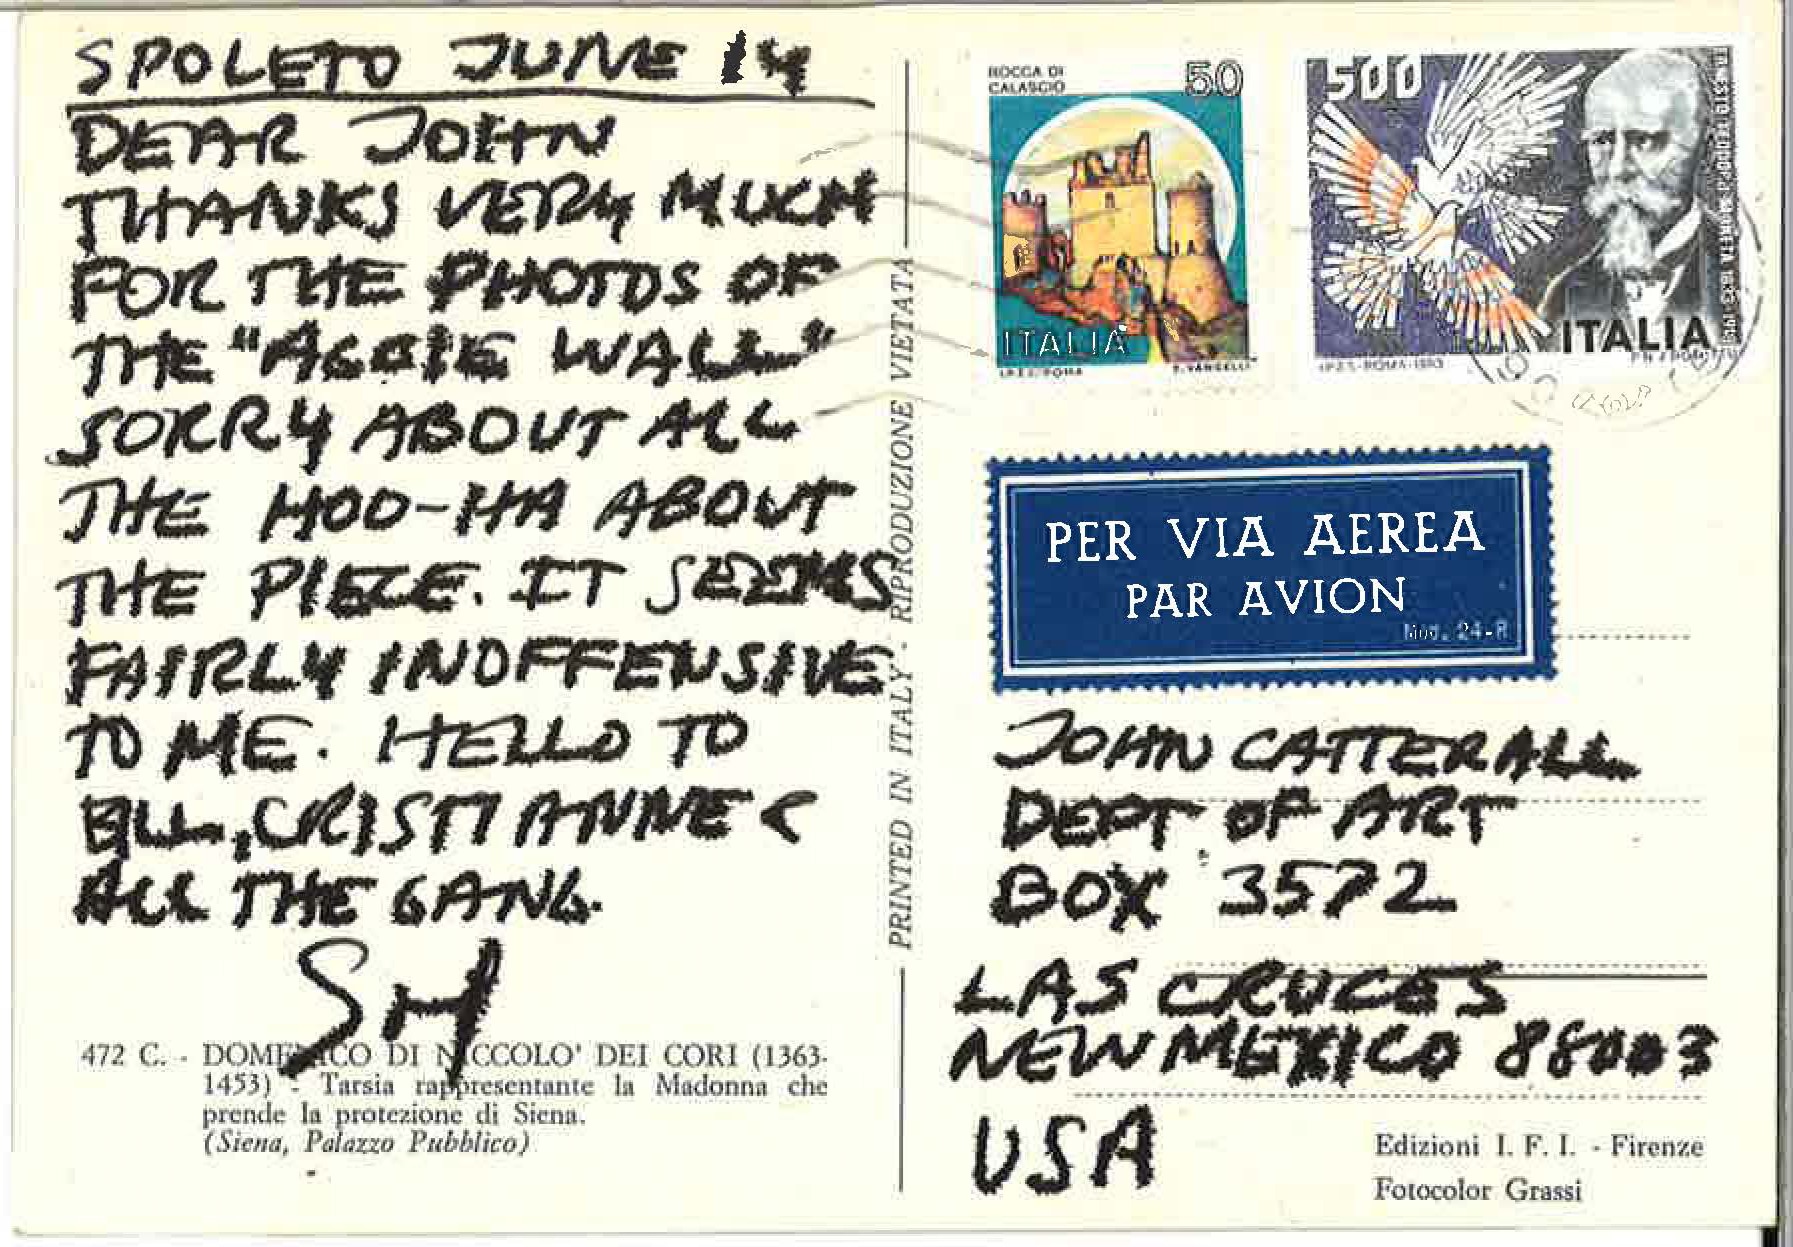 SPOLETO JUNE 14
DEAR JOHN
THANKS VERY MUCH
FOR THE PHOTOS OF
THE "AGGIE WALL"
SORRY ABOUT ALL
THE HOO-HA ABOUT
THE PIECE. IT SEEMS
FAIRLY INOFFENSIVE
TO ME. HELLO TO
BILL, CRISTIANNE &
ALL THE GANG.
SH
472 C. - DOMENICO DI NICCOLO' DEI CORI (1363-
1453) - Tarsia rappresentante la Madonna che
prende la protezione di Siena.
(Siena, Palazzo Pubblico)
PRINTED IN ITALY - RIPRODUZIONE VIETATA
ROCCA DI
CALASCIO
50
ITALIA
I.P.Z.S. ROMA
E. VANGELLI
500
ERNESTO TEODORO MONETA 1833-1918
ITALIA
I.P.Z.S.-ROMA-1983
PER VIA AEREA
PAR AVION
Mod. 24-R
JOHN CATTERALL
DEPT OF ART
BOX 3572
LAS CRUCES
NEW MEXICO 88003
USA
Edizioni I. F. I. - Firenze
Fotocolor Grassi